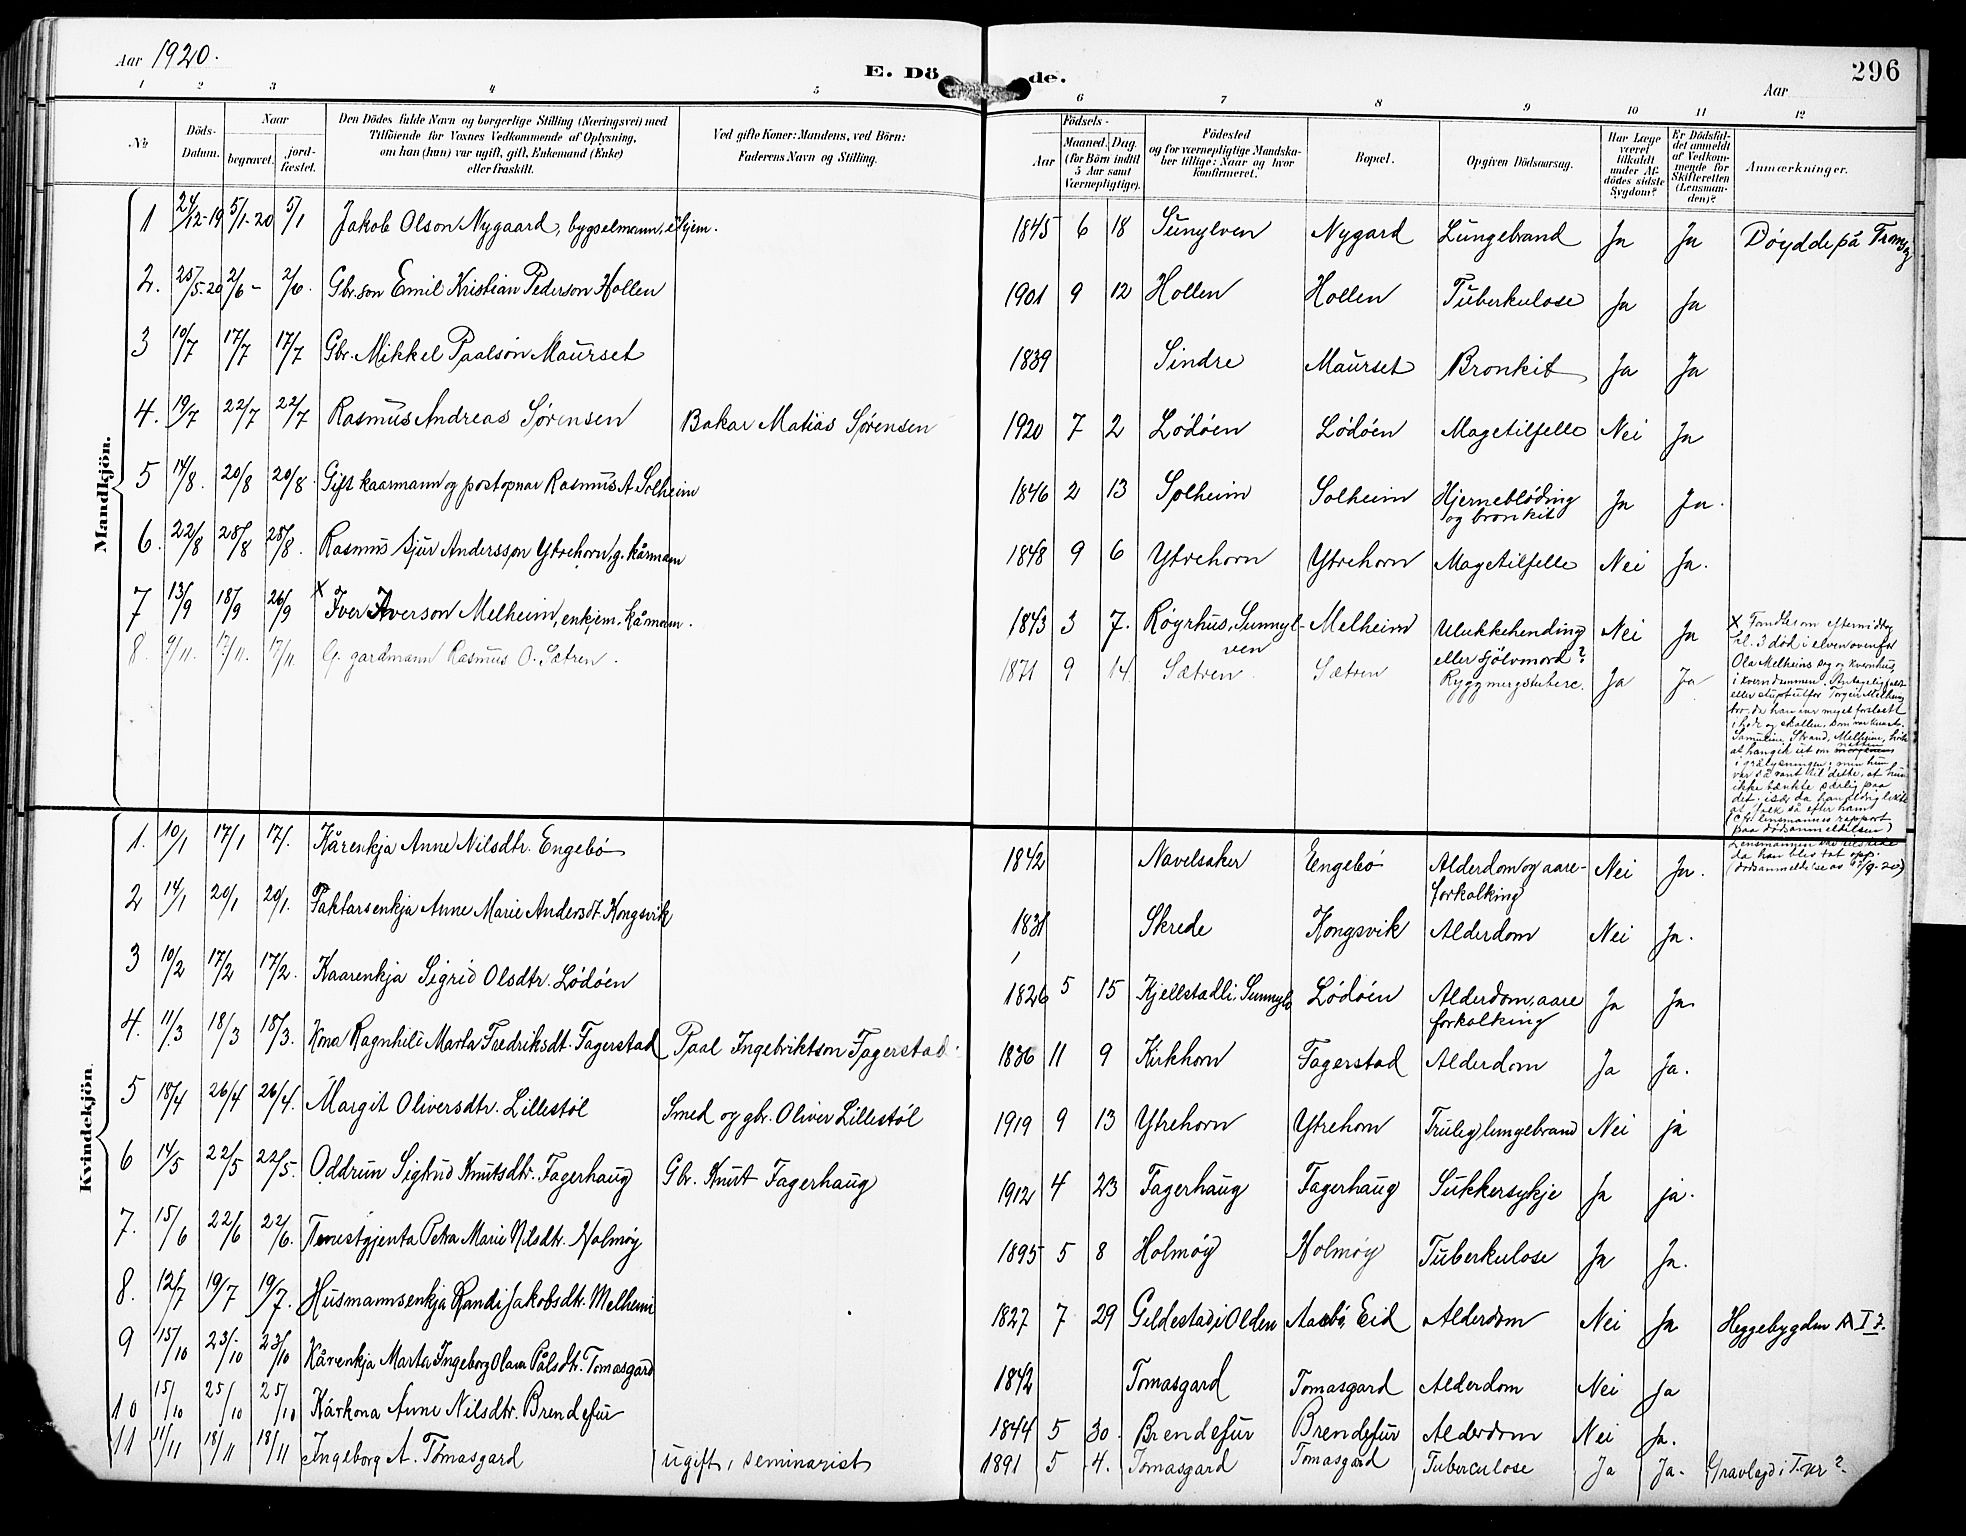 Aar 1920.
E. Dö de.
Aar
296
1 2 3 4 5 6 7 8 9 10 11 12
No
Döds-
Datum.
Naar
begravet.
jord-
fæstet.
Den Dödes fulde Navn og borgerlige Stilling (Næringsvei) med
Tilföiende for Voxnes Vedkommende af Oplysning,
om han (hun) var ugift, gift, Enkemand (Enke)
eller fraskilt.
Ved gifte Koner: Mandens, ved Börn:
Faderens Navn og Stilling.
Födsels-
Aar
Maaned. Dag.
(for Börn indtil
5 Aar samt
Værnepligtige).
Födested
og for værnepligtige Mandska-
ber tillige: Naar og hvor
konfirmeret.
Bopæl.
Opgiven Dödsaarsag.
Har Læge
været
tilkaldt
under Af-
dödes sidste
Sygdom?
Er Dödsfal-
det anmeldt
af Vedkom-
mende for
Skifteretten
(Lensman-
den)?
Anmærkninger.
Mandkjön.
1 24/12-19 5/1-20 5/1 Jakob Olson Nygaard, bygselmann, 1845 6 18 Sunylven Nygard Lungebrand Ja Ja Døydde på
2. 25/5-20 2/6- 2/6. Gbr.son Emil Kristian Pederson Hollen 1901 9 12 Hollen Hollen Tuberkulose Ja Ja
3 10/7 17/7 17/7 Gbr. Mikkel Paalson Maurset 1839 Sindre Maurset Bronkit Ja Ja
4. 19/7 22/7 22/7 Rasmus Andreas Sørensen Bakar Matias Sørensen 1920 7 2 Lødøen Lødøen Magetilfelle Nei Ja
5 14/8. 20/8 20/8. Gift kaarmann og postopnar Rasmus A Solheim 1846 2 13 Solheim Solheim Hjerneblöding
og bronkit Ja Ja.
6. 22/8 28/8 28/8. Rasmus Sjur Andersson Ytrehorn, g. kårmann 1848 9 6 Ytrehorn Ytrehorn Magetilfelle Nei Ja.
7 13/9 18/9 26/9 x Iver Iverson Melheim, enkjem. kårmann. 1843 3 7. Røyrhus, Sunnyl-
ven Melheim Ulukkehending
eller sjölvmord? Nei Ja
8. 9/11. 17/11. 17/11 G. gardmann Rasmus O. Sætren. 1871 9 14 Sætren. Sætren Ryggmergstuberc. Ja Ja
x Fundet om eftermiddag
kl. 3 död i elven ovenfor
Ola Melheins sag og kvernhus,
i kverndammen. Antagelig faldt
eller stupt utfor Torgeir Melheims
bro, da han var meget forslaatt
i hode og skallen, som var knust.
Samuline Strand, Melheim, hörte
at han gik ut om morgenen natten
i grålysningen; men hun
var så vant til dette, at hun
ikke tænkte særlig paa
det.
(cfr. lensmannens rapport
paa dödsanmeldelsen)
Lensmannen var tilstede
da han blev tat opp.
(dödsanmeldelse av 17/9-20)
Kvindekjön.
1. 10/1 17/1 17/1. Kårenkja Anne Nilsdtr. Engebö 1842 Navelsaker Eengebö Alderdom og aare-
forkalking Nei Ja.
2 14/1 20/1 20/1. Faktarsenkja Anne Marie Andersdt. Kongsvik 1831 Skrede Kongsvik Alderdom Nei Ja.
3 10/2 17/2 17/2. Kaarenkja Sigrid Olsdtr. Lødøen 1826 5 15 Kjellstadli, Sunnylv Lødøen Alderdom, aare
forkalking Ja Ja
4. 11/3 18/3 18/3. Kona Ragnhild Marta Fredriksdt. Fagerstad Paal Ingebriktson Fagerstad 1836 11 9 Kirkhorn Fagerstad Alderdom Ja Ja.
5 18/4 26/4 26/4. Margit Oliversdtr. Lillestøl Smed og gbr. Oliver Lillestøl 1919 9 13 Ytrehorn Ytrehorn Truleg lungebrand Nei ja
6 14/5 22/5 22/5. Oddrun Sigtrud Knutsdtr. Fagerhaug Gbr. Knut Fagerhaug 1912 4 23 Fagerhaug Fagerhaug Sukkersykje Ja ja.
7. 15/6 22/6 22/6. Tenestgjenta Petra Marie Nilsdtr. Holmøy 1895 5 8 Holmøy Holmøy Tuberkulose Ja Ja.
8. 12/7 19/7 19/7. Husmannsenkja Randi Jakobsdtr. Melheim 1827 7 29 Geldestad, Olden Eid Alderdom Nei Ja Heggebygden
9 15/10 23/10 23/10 Kårenkja Marta Ingeborg Olava Pålsdtr. Tomasgard 1842 Tomasgard Tomasgard Alderdom Nei Ja
10 15/10 25/10 25/10 Kårkona Anne Nilsdtr. Brendefur 1844 5 30. Brendefur Brendefur Alderdom Nei Ja.
11 11/11 18/11 18/11 Ingeborg A. Tomasgard ugift, seminarist 1891 5 4. Tomasgard Tomasgard Tuberculose Ja Ja. Gravlagd i